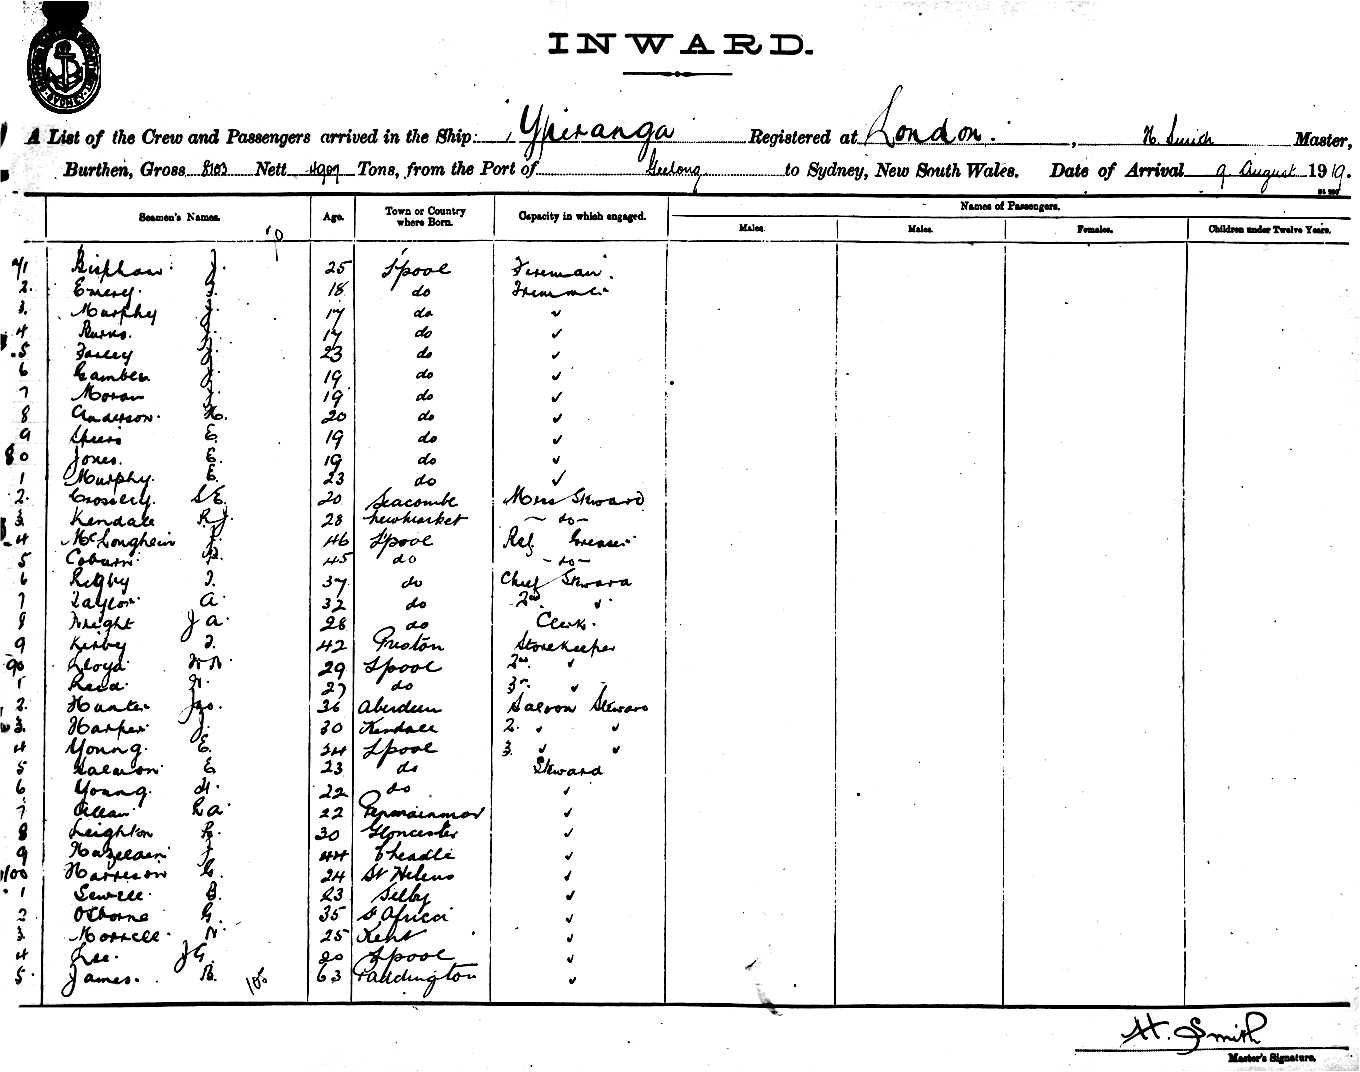 INWARD.
A List of the Crew and Passengers arrived in the Ship: Ypiranga Registered at London. , H. Smith Master,
Burthen, Gross 8103 Nett 4909 Tons, from the Port of Geelong to Sydney, New South Wales. Date of Arrival 9 August 1919.
Names of Passengers.
Seamen's Names. Age. Town or Country where Born. Capacity in which engaged. Males. Males. Females. Children under Twelve Years.
71 J. 25 L'pool Fireman.
2. Emery. 18 do Trimmer
3. Murphy J. 17 do ✓
4 Burns. J. 17 do ✓
5 J. 23 do ✓
6 J. 19 do ✓
7 Moran J. 19 do ✓
8 Anderson. H. 20 do ✓
9 Speers E. 19 do ✓
80 Jones. E. 19 do ✓
1 Murphy. E. 23 do ✓
2. S E. 20 Seacombe Mess Steward
3. Kendall R J. 28 Newmarket - do -
4 J. 46 L'pool Ref Greaser
5 Coburn 45 do - do -
6 Rigby 37 do Chief Steward
7 Taylor A. 32 do 2nd ✓
8 Wright J A. 28 do Clerk.
9 Kirby 42 Preston Storekeeper
90 Lloyd 29 L'pool 2nd ✓
1 Reid 27 do 3rd ✓
2. Hunter Jas. 36 Aberdeen Saloon Steward
3. Harper J. 30 Kendall 2. ✓ ✓
4 Young. E. 24 L'pool 3. ✓ ✓
5 Salmon E. 23 do Steward
6 Young. H. 22 do ✓
7 Allan R A. 22 Penmainmar ✓
8 Leighton R. 30 Gloucester ✓
9 J. 44 Cheadle ✓
100 Harrison G. 24 St Helens ✓
1 Sewell. B. 23 Selby ✓
2 Osborne G. 35 S. Africa ✓
3. Morrell. N. 25 Kent ✓
4 Lee. J G. 20 L'pool ✓
5. James. 63 Paddington ✓
H. Smith
Master's Signature.